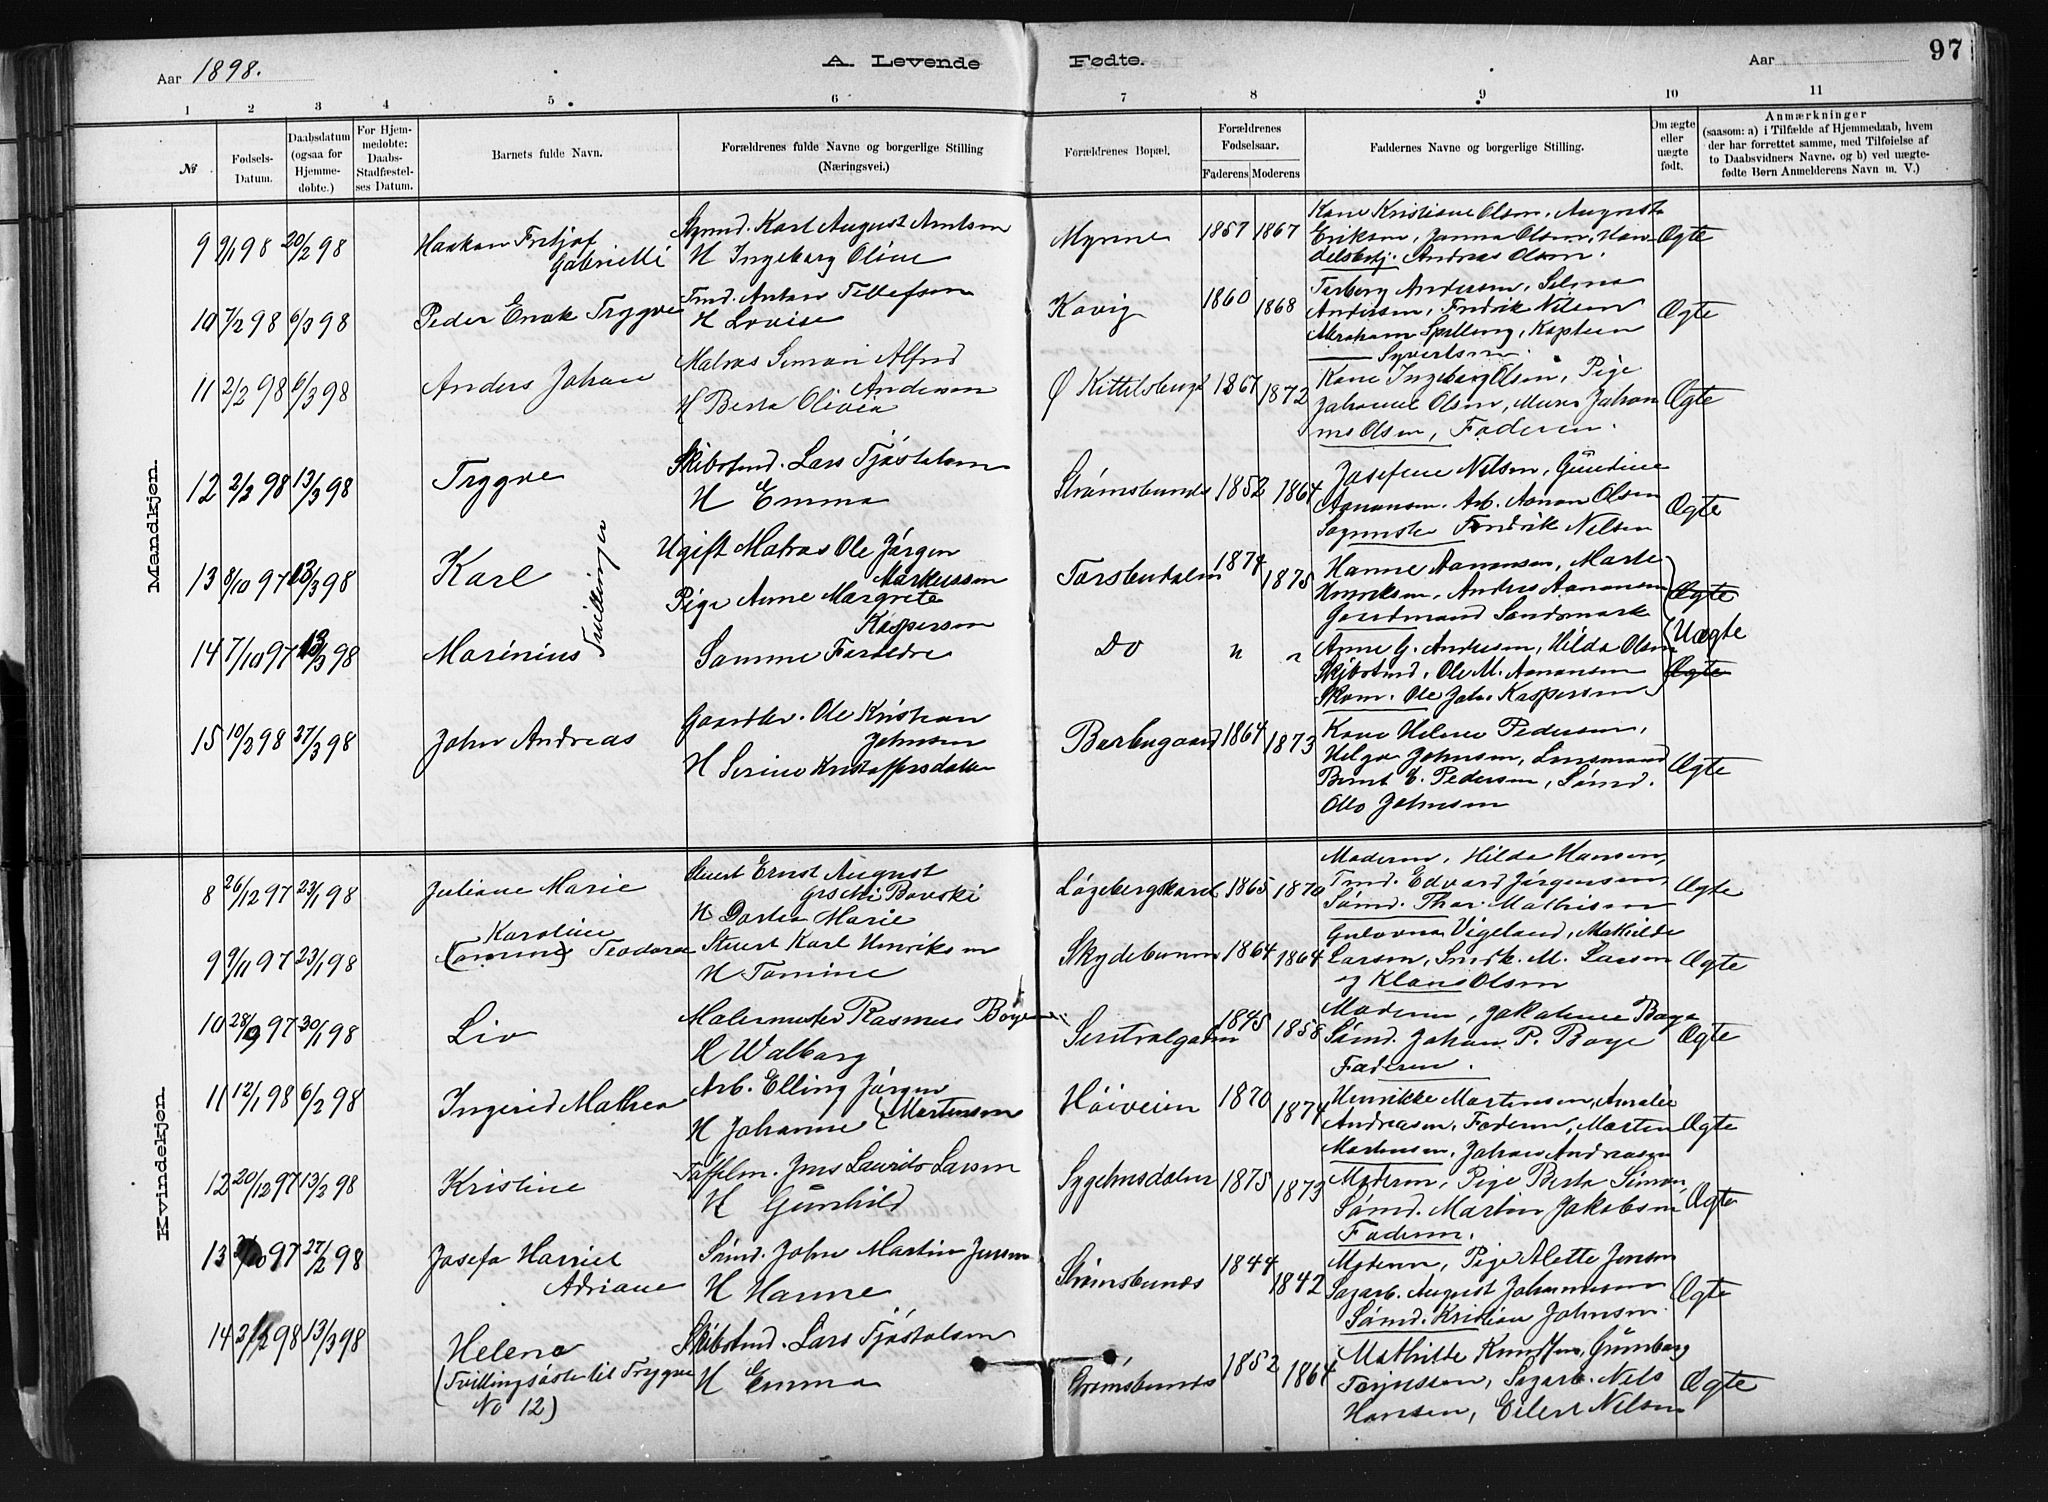 Aar 1898. A. Levende Fødte. Aar 97
1 2 3 4 5 6 7 8 9 10 11
№ Fødsels-Datum. Daabsdatum (ogsaa for Hjemmedøbte.) For Hjemmedøbte: Daabs-Stadfæstelses Datum. Barnets fulde Navn. Forældrenes fulde Navne og borgerlige Stilling (Næringsvei.) Forældrenes Bopæl. Forældrenes Fødselsaar. Faderens Moderens Faddernes Navne og borgerlige Stilling. Om ægte eller uægte født. Anmærkninger (saasom: a) i Tilfælde af Hjemmedaab, hvem der har forrettet samme, med Tilføielse af to Daabsvidners Navne, og b) ved uægtefødte Børn Anmelderens Navn m. V.)
Mandkjøn.
9 9/1 98 20/2 98 Haakon Fritjof Karl August Arntsen Myrene 1857 1867 Kone Kristiane Olsen, Augusta
Gabrielli H Ingeborg Oline Eriksen, Janna Olsen, Han- Ægte
delsbetj. Andreas Olsen.
10 7/2 98 6/3 98 Peder Enok Trygve Tmd. Anton Tellefsen Kovig 1860 1868 Torborg Andersen, Selma
H Lovise Andersen, Fredrik Nilsen Ægte
Abraham Spilling, Kaptein
Syvertsen.
11 2/2 98 6/3 98 Anders Johan Matros Simon Alfred Ø Kittelsbugt 1867 1872 Kone Ingeborg Olsen, Pige
Andersen Johanne Olsen, Murer Johan Ægte
H Berta Olivia Olsen, Faderen.
12 2/3 98 13/3 98 Trygve Skibstmd. Lars Tjøstolsen Strømsbunes 1852 1864 Josefine Nilsen, Gundine
H Emma Aanonsen, Arb. Aanon Olsen Ægte
Fredrik Nilsen
13 8/10 97 13/3 98 Karl Tvillinger Ugift Matros Ole Jørgen Torsbudalen 1874 1875 Hanne Aanonsen, Marte
Markussen Henriksen, Andreas Aanonsen Ægte
Pige Anne Margrete Sandsmark
Kaspersen
14 7/10 97 13/3 98 Marinius Samme Forældre Do " " Anne G. Andersen, Hilda Olsen Uægte
Skibstmd. Ole M. Aanonsen Ægte
Skom. Ole Joh. Kaspersen
15 10/2 98 27/3 98 John Andreas Ole Kristian Barbugaard 1864 1873 Kone Helene Pedersen,
Johnsen Helga Johnsen, Ægte
H Serine Kristoffersdatter Bernt E. Pedersen, Sømd.
Otto Johnsen
Kvindekjøn.
8 26/12 97 23/1 98 Juliane Marie Stuert Ernst August Løgebergskard 1865 1870 Moderen, Hilda Hansen,
Bovski Tmd. Edvard Jørgensen, Ægte
H Dortea Marie Sømd. Thor Mathisen
9 9/11 97 23/1 98 Karoline
Teodora Stuert Karl Henriksen Skydebanen 1864 1864 Gulovna Vigeland, Mathilde
H Tomine Larsen, Smdk. M. Larsen Ægte
og Klaus Olsen
10 28/9 97 30/1 98 Liv Malermester Rasmus Boye Sentralgaden 1845 1858 Moderen, Jakobine Boye
H Walborg Sømd. Johan P. Boye Ægte
Faderen.
11 12/1 98 6/2 98 Ingerid Mathea Arb. Elling Jørgen Høiveien 1870 1874 Henrikke Mortensen, Amalie
(Mortensen Andreasen, Faderen, Morten Ægte
H Johanne Mortensen, Johan Andreasen
12 20/12 97 13/2 98 Kristine Jens Laurits Larsen Sygehusdalen 1875 1873 Moderen, Pige Berta Simon,
H Gunhild Sømd. Martin Jakobsen Ægte
Faderen.
13 /10 97 27/2 98 Josefa Harriet Sømd. John Martin Jensen Strømsbunes 1844 1842 Moderen, Pige Alette Jensen
Adriane H Hanne Sagarb. August Johannesen Ægte
Sømd. Kristian Johnsen
14 2/3 98 13/3 98 Helene Skibstmd. Lars Tjøstolsen Strømsbunes 1852 1864 Mathilde Knudsen, Gunborg
(Tvillingsøster til Trygve H Emma Terjussen, Sagarb. Nils Ægte
No 12) Hansen, Eilert Nilsen